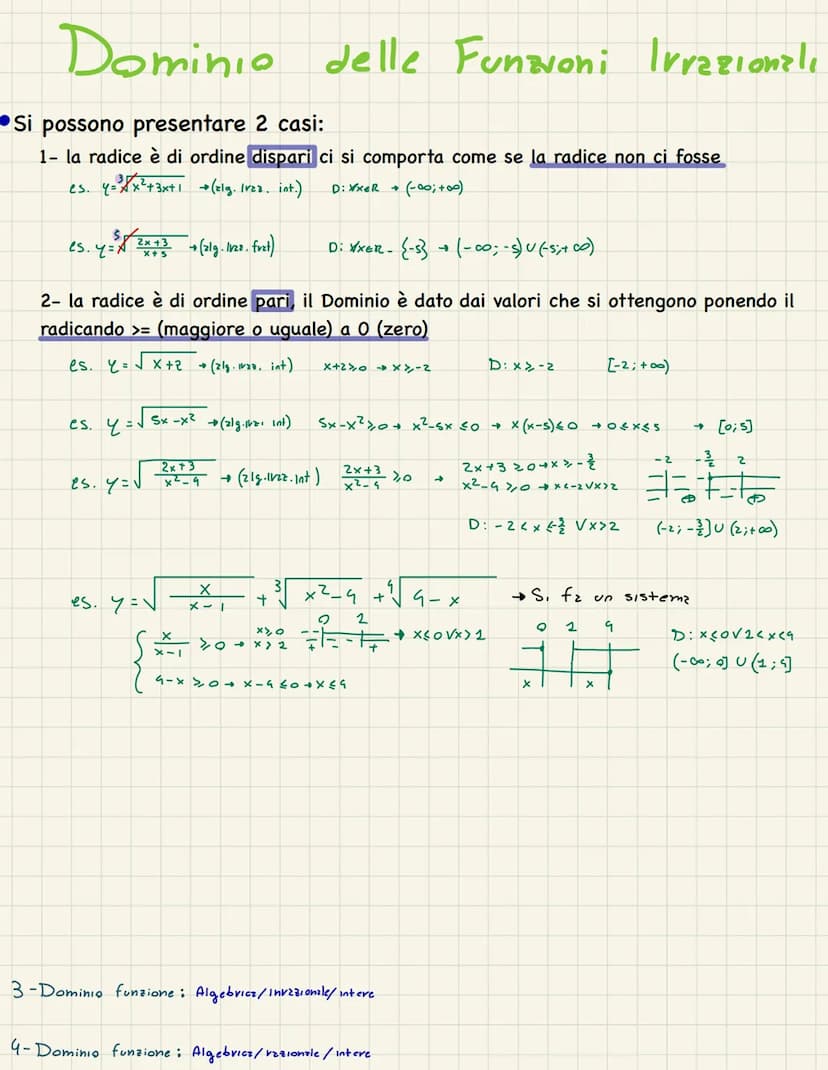 Dominio delle Funzioni Irrazionali
• Si possono presentare 2 casi:
1- la radice è di ordine dispari ci si comporta come se la radice non ci fosse
es. y=∛x²+3x+1 → (alg. irraz. int.) D: ∀x∈R → (-∞;+∞)
es. y=⁵√(2x+3)/(x+5) → (alg. irraz. frat) D: ∀x∈R - {-5} → (-∞;-5) U (-5;+∞)
2- la radice è di ordine pari, il Dominio è dato dai valori che si ottengono ponendo il
radicando >= (maggiore o uguale) a 0 (zero)
es. y=√x+2 → (alg. irraz. int) x+2≥0 → x≥-2 D: x≥-2 [-2;+∞)
es. y=√5x-x² → (alg. irraz. int) 5x-x²≥0 → x²-5x≤0 → x(x-5)≤0 → 0≤x≤5 → [0;5]
es. y=√(2x+3)/(x²-4) → (alg. irraz. int) (2x+3)/(x²-4) ≥0 → 2x+3≥0→x≥-3/2 -2 -3/2 2
x²-4≥0 → x<-2 V x>2
D: -2<x≤-3/2 V x>2 (-2;-3/2] U (2;+∞)
es. y=√x/(x-1) + ∛x²-4 + ⁴√4-x → Si fa un sistema
{ x/(x-1) ≥0 → x≥0 x>1 0 1 → x≤0 V x>1 0 1 4 D: x≤0 V 1<x<4
4-x≥0 → x-4≤0 → x≤4 (-∞;0] U (1;4]
3-Dominio funzione: Algebrica/irrazionale/intera
4-Dominio funzione: Algebrica/razionale/intera